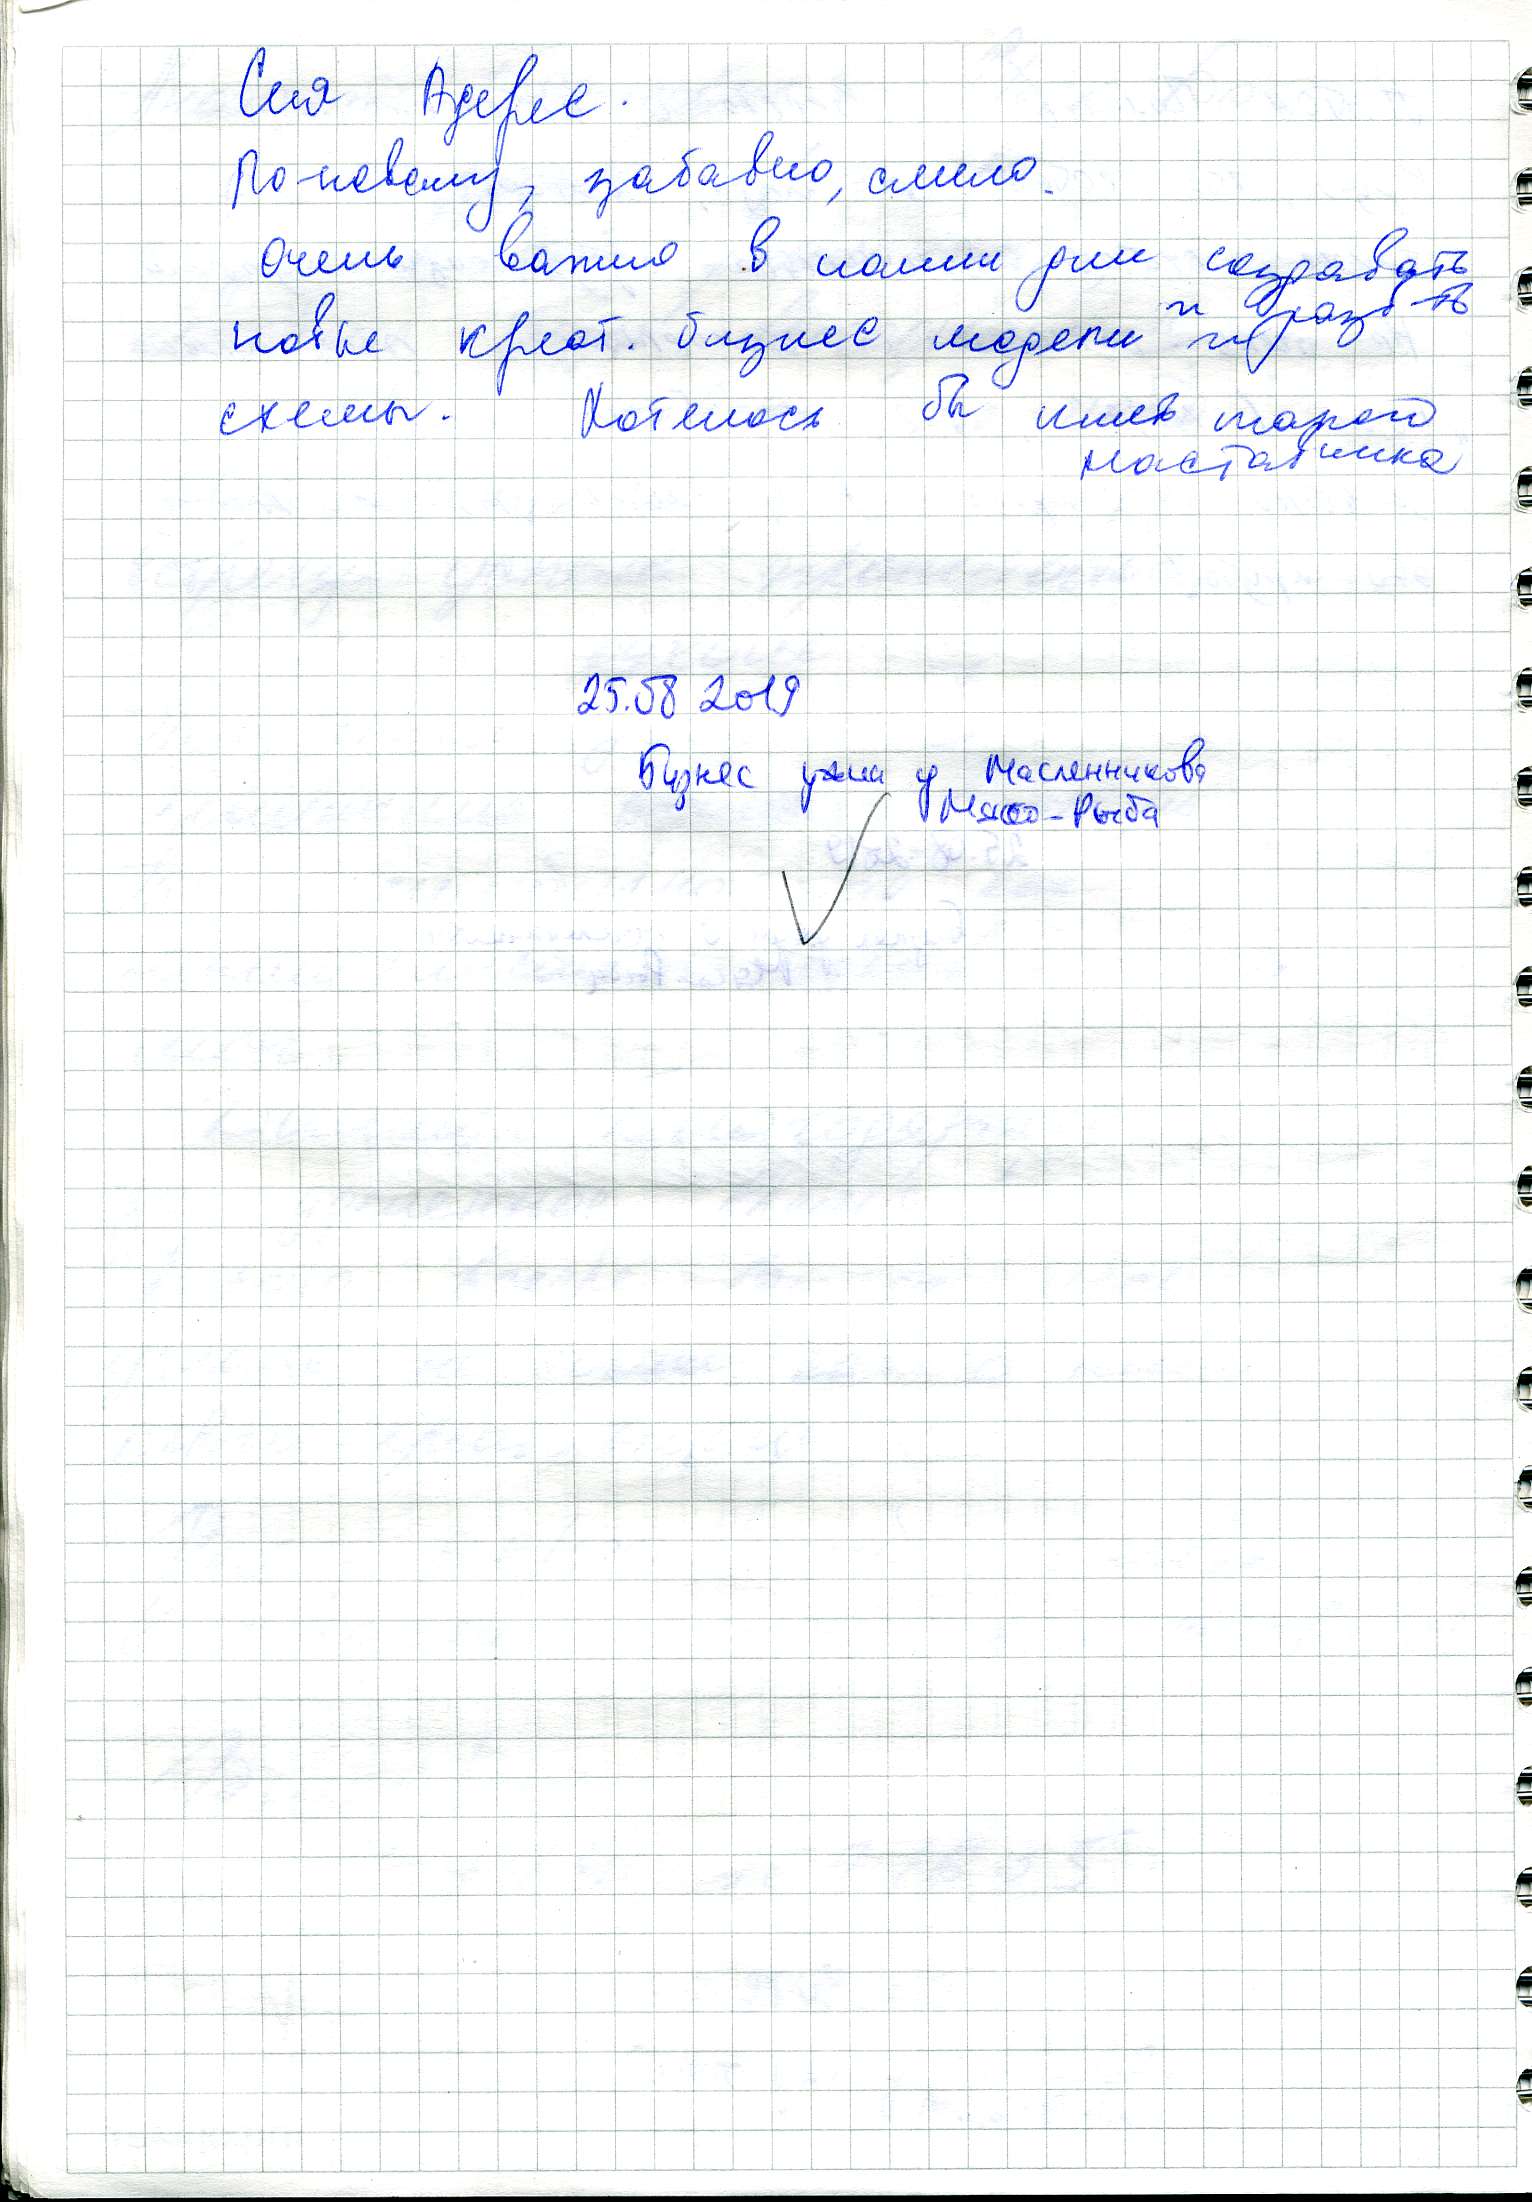 Сия Адерес.
По-новому, забавно, смело.
очень важно в наши дни создавать
новые креат. бизнес модели и разв-ть
схемы. Хотелось бы иметь такого
наставника
25.08 2019
Бизнес ужин у Масленникова
Мясо-Рыба